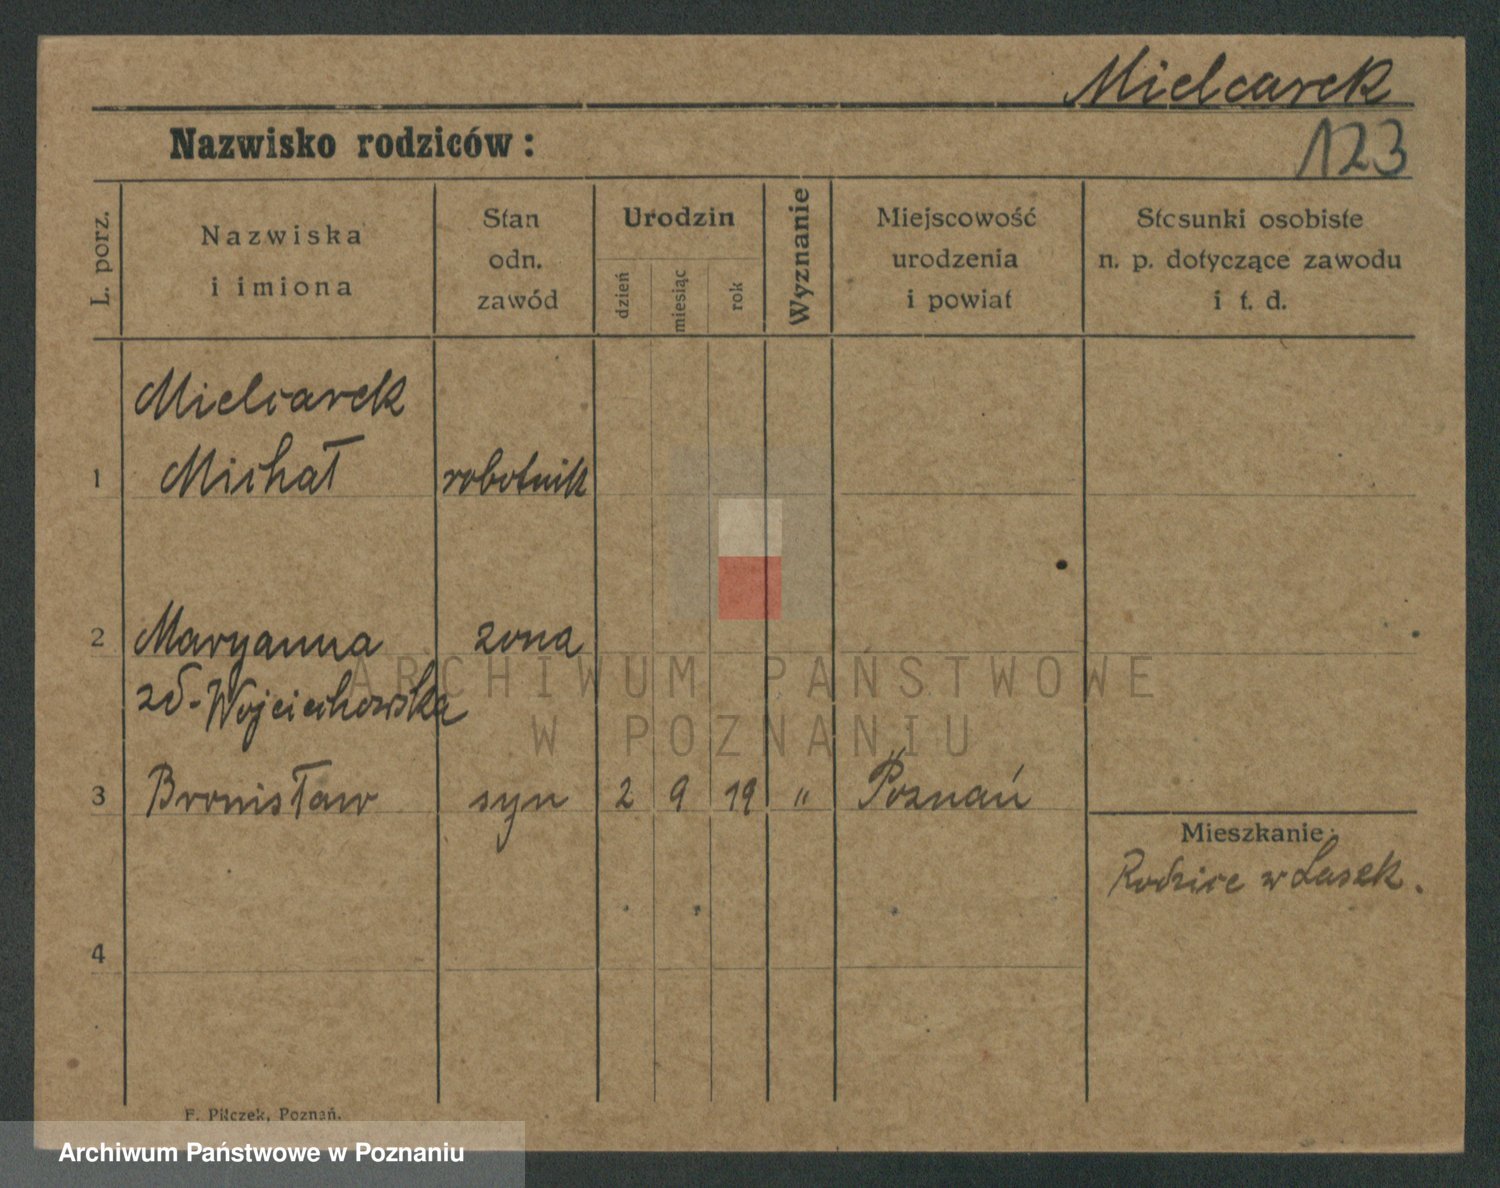 Mielcarek
Nazwisko rodziców:
123
L. porz.
Nazwiska
i imiona
Stan
odn.
zawód
Urodzin
dzień
miesiąc
rok
Wyznanie
Miejscowość
urodzenia
i powiat
Stosunki osobiste
n. p. dotyczące zawodu
i t. d.
Mielcarek
1 Michał robotnik
2 Maryanna zona
zd. Wojciechowska
3 Bronisław syn 2 9 19 " Poznań
Mieszkanie:
Rodzice w Lasek.
4
F. Pilczek, Poznań.
ARCHIWUM PAŃSTWOWE
W POZNANIU
Archiwum Państwowe w Poznaniu